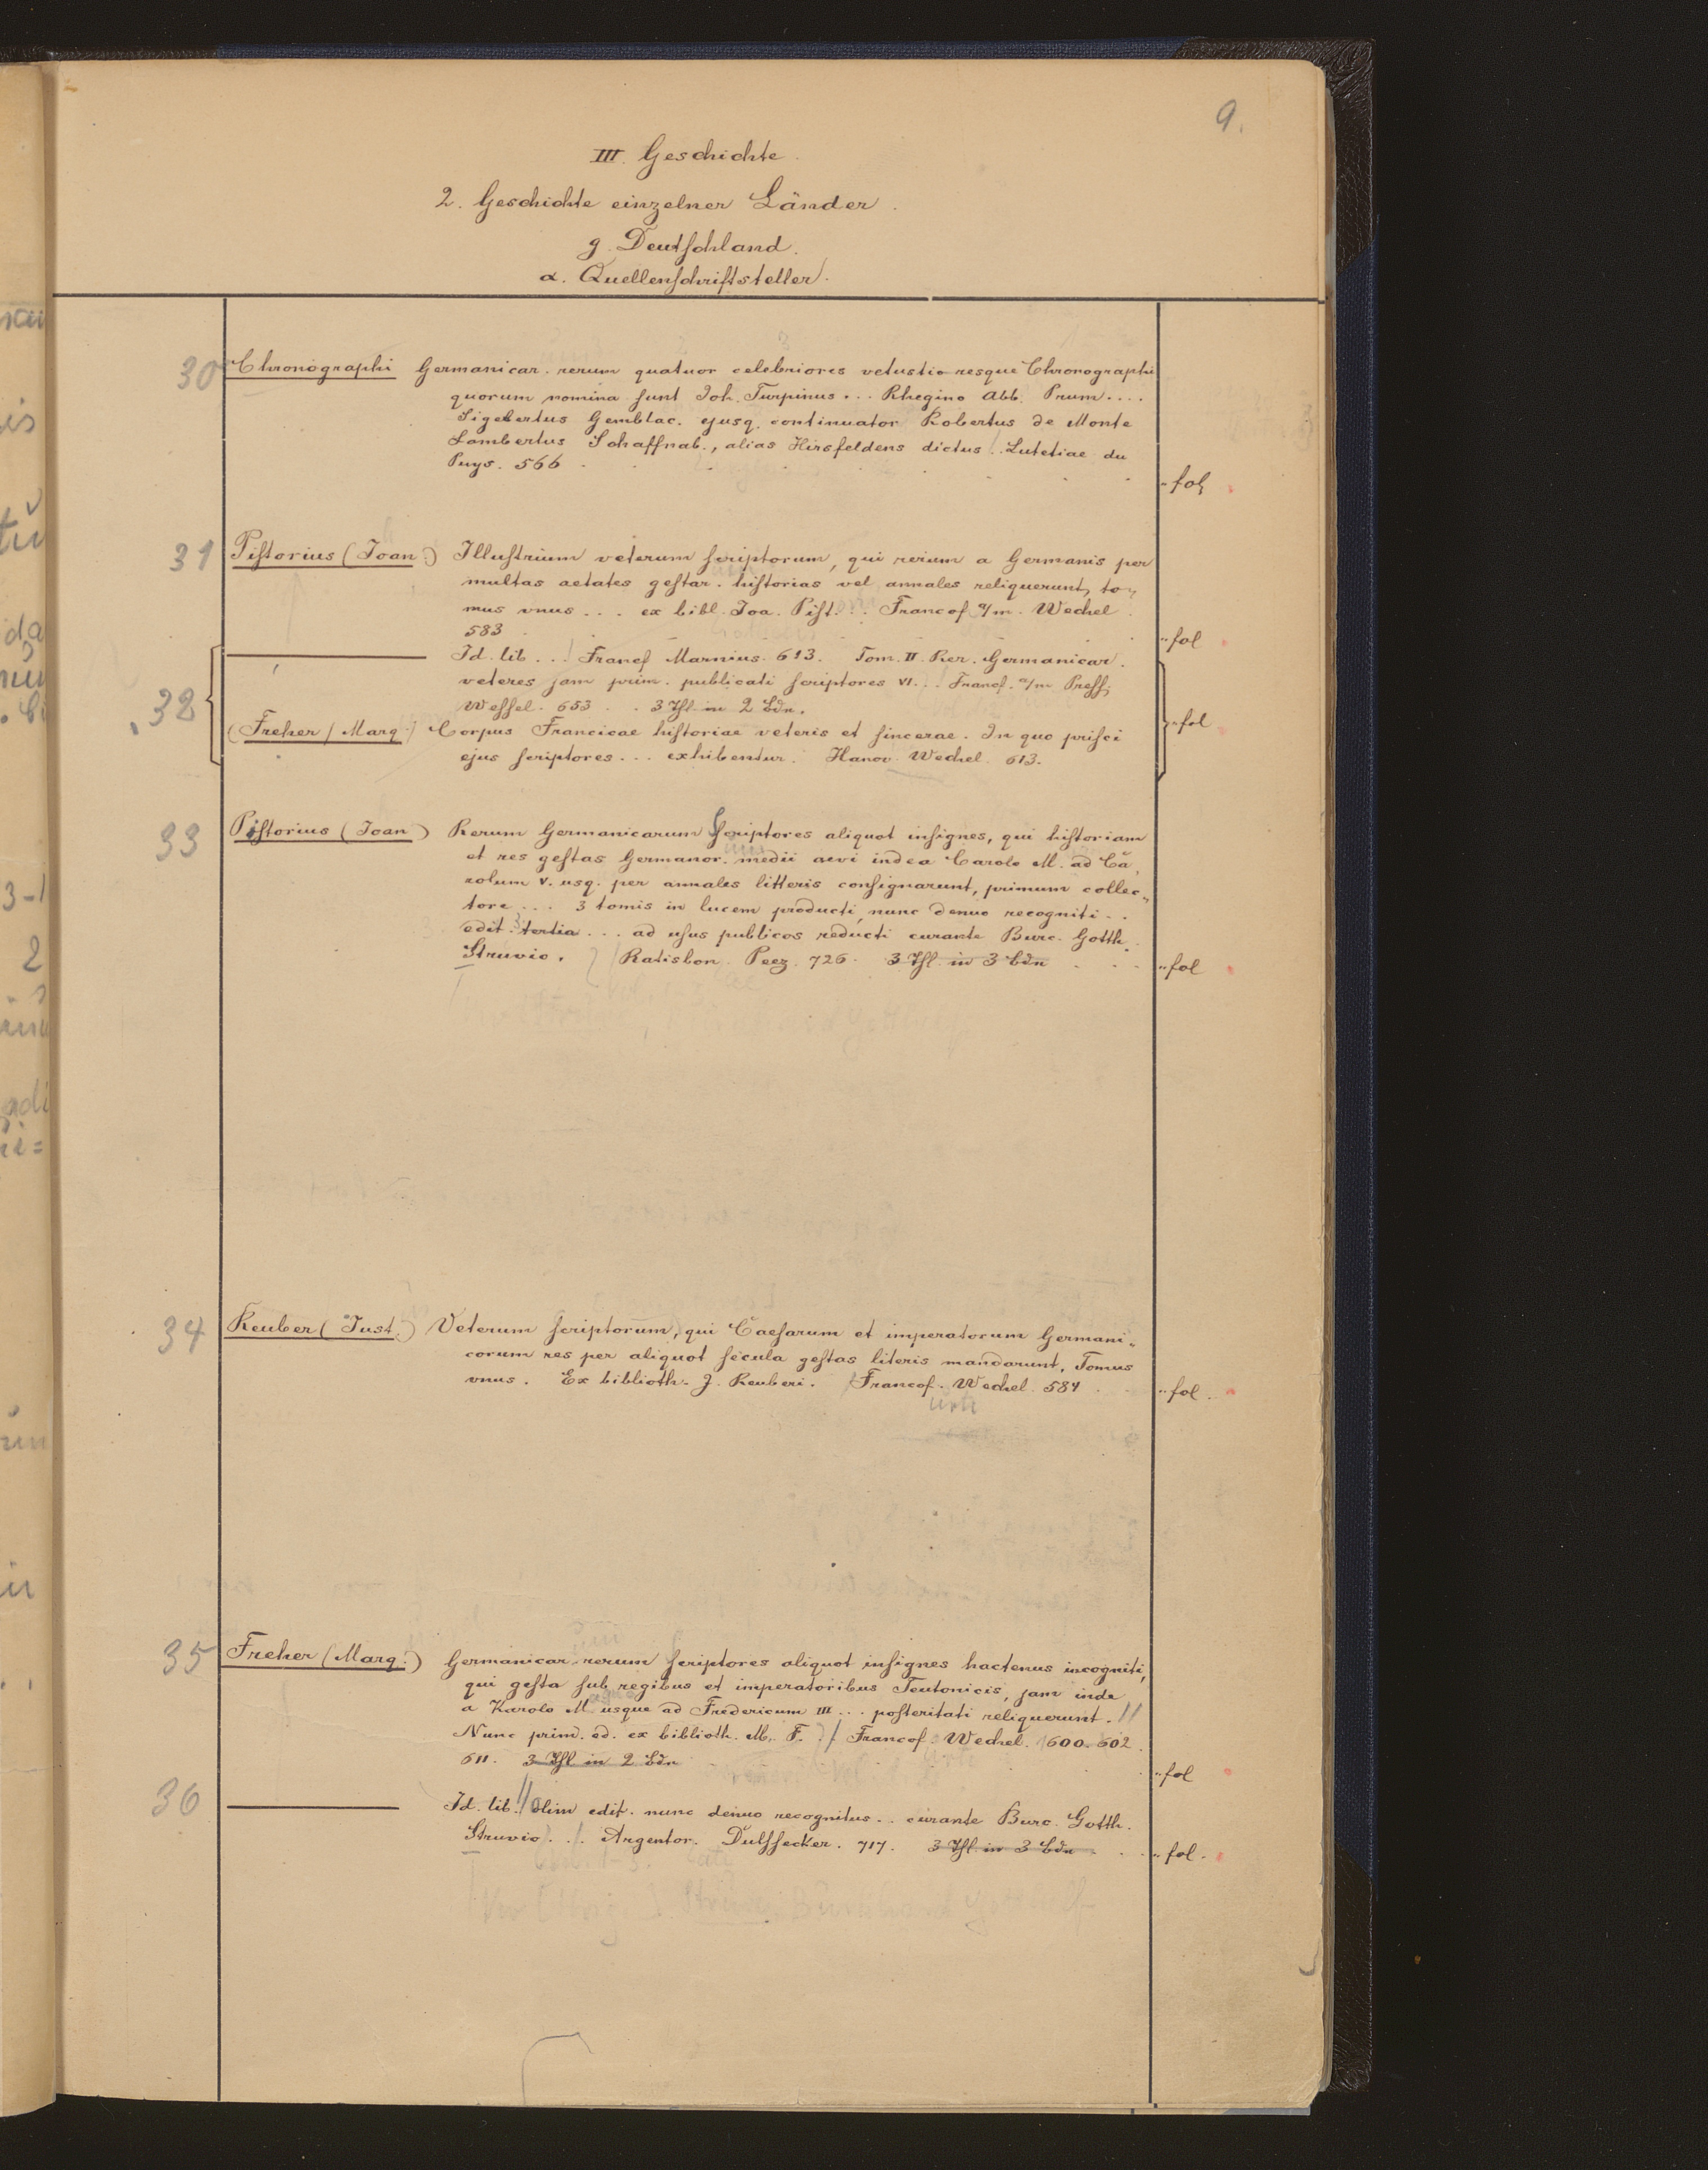 9.
III. Geschichte.
2. Geschichte einzelner Länder.
g. Deutschland.
α. Quellenschriftsteller.
30 Chronographi Germanicar. rerum quatuor celebriores vetustioresque Chronographi
quorum nomina sunt Joh. Turpinus... Rhegino Abb. Prum....
Sigebertus Gemblac. ejusq. continuator Robertus de Monte
Lambertus Schaffnab., alias Hirsfeldens dictus. Lutetiae du
Puys. 566 " fol.
31 Pistorius (Joan.) Illustrium veterum scriptorum, qui rerum a Germanis per
multas aetates gestar. historias vel annales reliquerunt, to-
mus vnus... ex bibl. Joa. Pist... Francof. a/m. Wechel
583 " fol
Id. lib... Francf Marnius. 613. Tom. II. Rer. Germanicar.
veteres jam prim. publicati scriptores VI... Francf. a/m Press.
32 Wessel. 653. . 3 Thl. in 2 Bdn. " fol
(Freher (Marq.) Corpus Francicae historiae veteris et sincerae. In quo prisci
ejus scriptores... exhibentur. Hanov. Wechel. 613.
33 Pistorius (Joan) Rerum Germanicarum scriptores aliquot insignes, qui historiam
et res gestas Germanor. medii aevi inde a Carolo M. ad Ca
rolum V. usq. per annales litteris consignarunt, primum collec-
tore... 3 tomis in lucem producti, nunc denuo recogniti..
edit. tertia... ad usus publicos reducti curante Burc. Gotth.
Struvio. Ratisbon. Peez. 726. 3 Thl. in 3 Bdn " fol
34 Reuber (Just.) Veterum scriptorum, qui Caesarum et imperatorum Germani-
corum res per aliquot secula gestas literis mandarunt, Tomus
vnus. Ex biblioth. J. Reuberi. Francof. Wechel. 584 " fol.
35 Freher (Marq.) Germanicar. rerum scriptores aliquot insignes hactenus incogniti,
qui gesta sub regibus et imperatoribus Teutonicis, jam inde
a Karolo M. usque ad Fredericum III... posteritati reliquerunt. //
Nunc prim. ed. ex biblioth. M. F. / Francof. Wechel. 1600. 602.
611. 3 Thl in 2 Bdn " fol
36 Id. lib. // olim edit. nunc denuo recognitus.. curante Burc. Gotth.
Struvio. . / Argentor. Dulssecker. 717. 3 Thl. in 3 Bdn " fol.